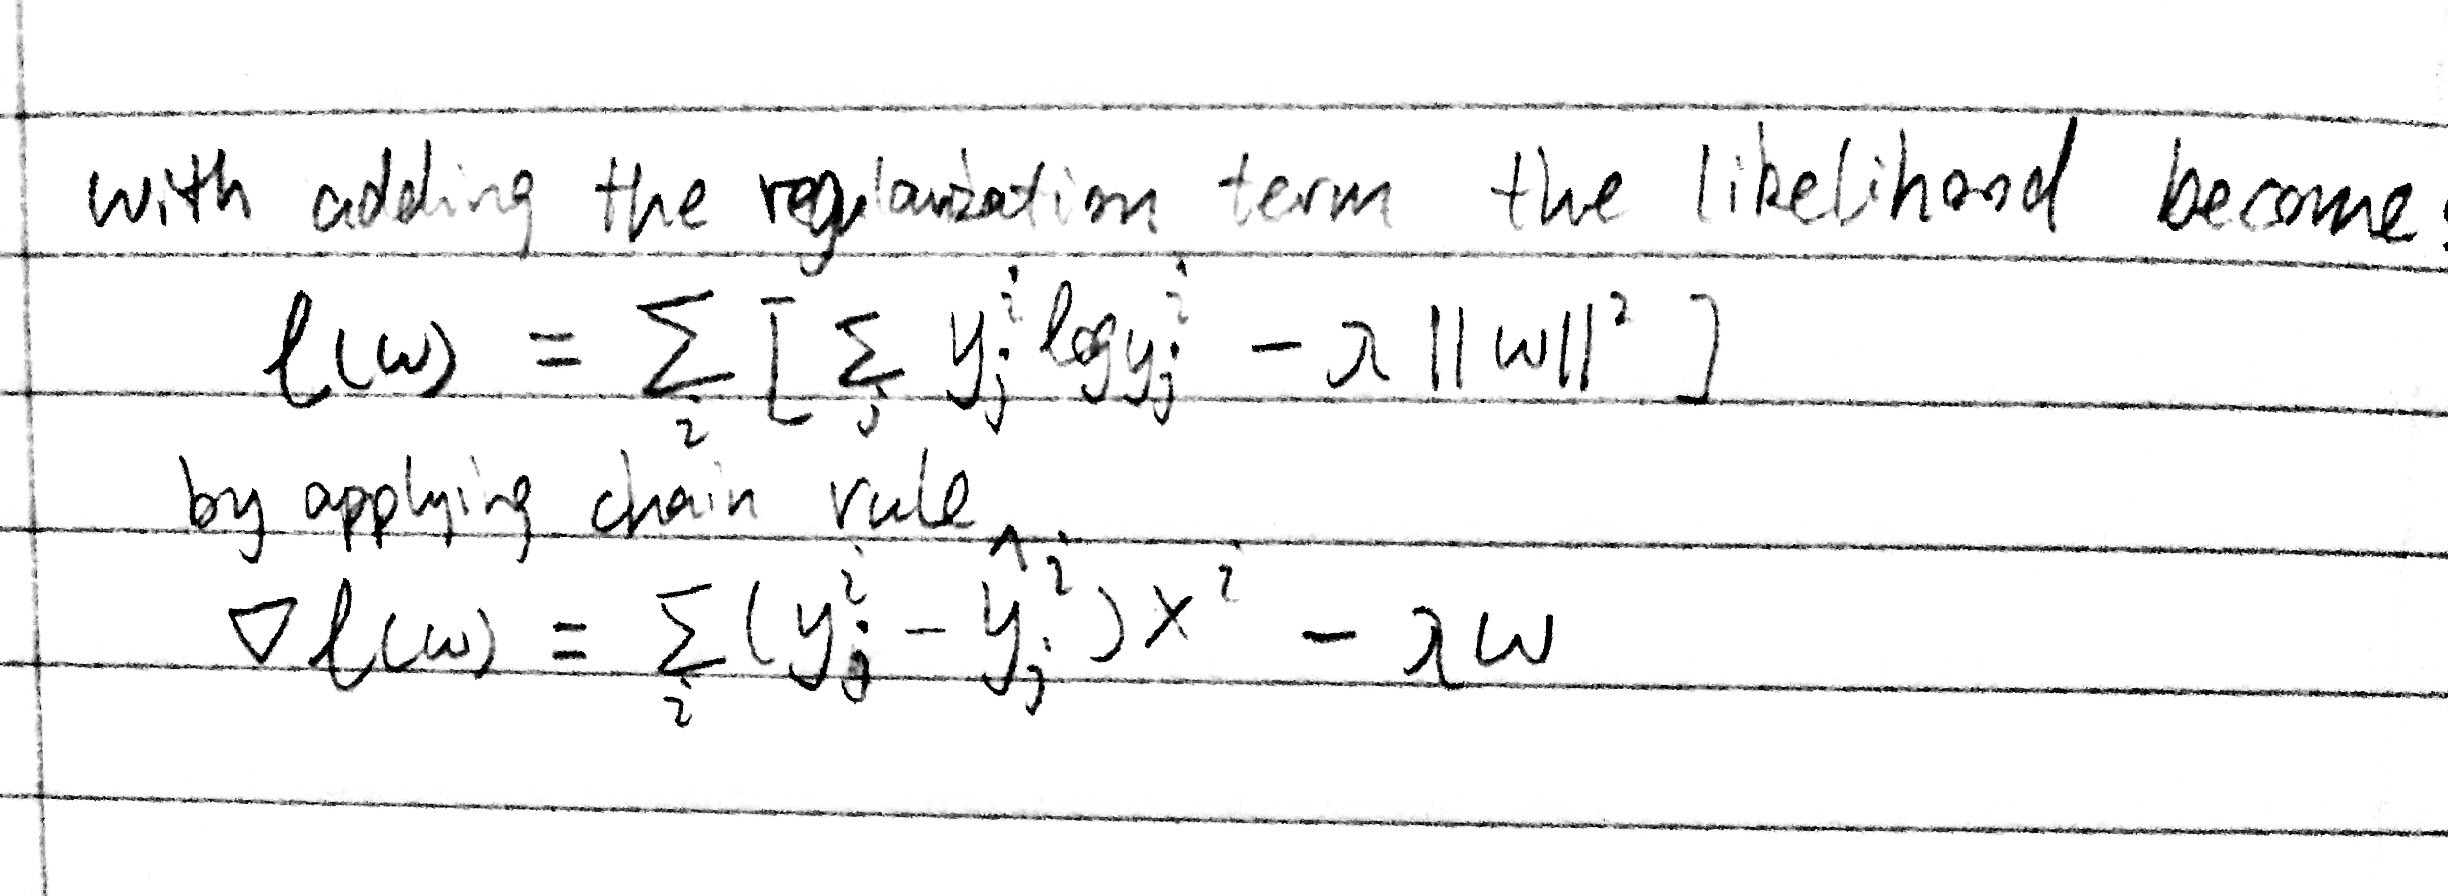 with adding the regularization term the likelihood become:
ℓ(w) = Σ_i [ Σ_j y_j^i log y_j^i − λ ||w||² ]
by applying chain rule
∇ℓ(w) = Σ_i (y_j^i − ŷ_j^i) x^i − λw